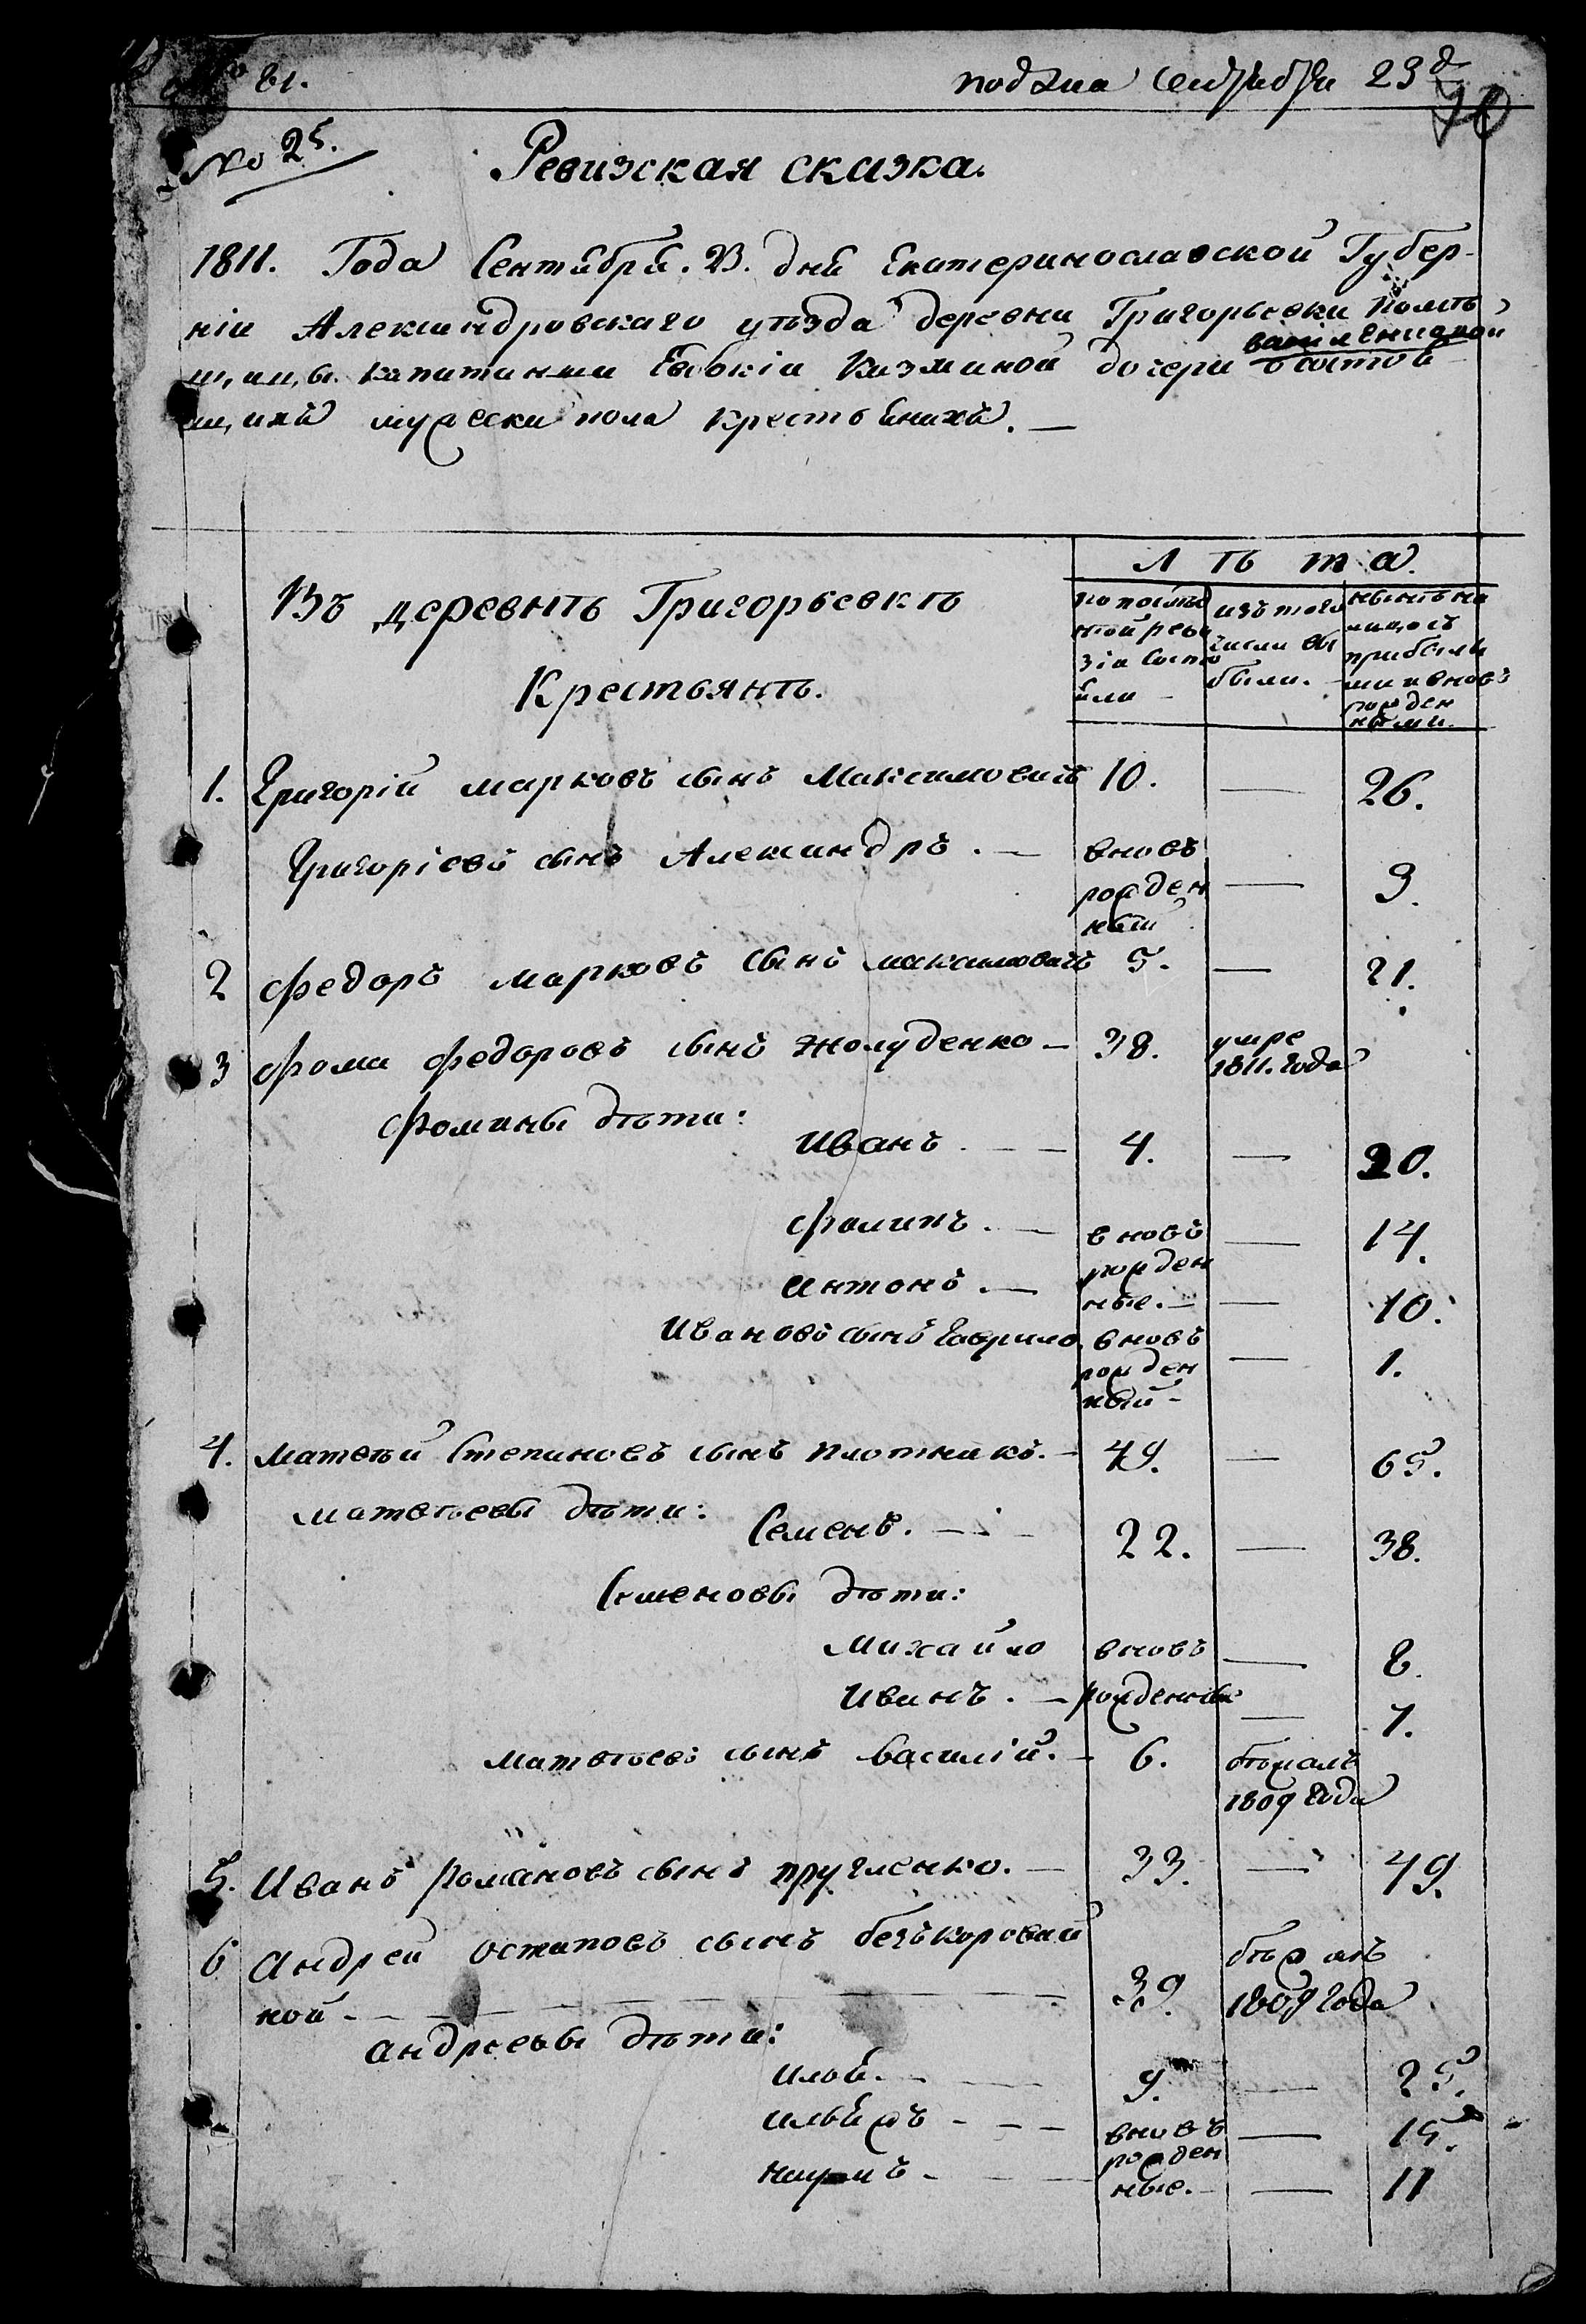 81.
подана Сентября 23 д
70
No 25.
Ревизская сказка.
1811. Года Сентября. 23. дня Екатеринославской Губер-
ніи Александровскаго уѣзда деревни Григорьевки помѣ
щицы капитанши Евдокіи Козминой дочери
о состоя
щихъ мужеска пола крестьянахъ. —
Въ деревнѣ Григорьевкѣ
Крестьянъ.
Лѣта.
по послѣд
ней реви
зіи состо
яли
изъ того
числа вы
были. -
нынѣ на
лицо съ
прибылы
ми и вновь
рожден
ными.
1. Григорій Марковъ сынъ Максимовичъ 10. — 26.
Григоріевъ сынъ Александръ. — вновь
рожден
ный — 3.
2 Федоръ Марковъ сынъ Максимовичъ 5. — 21.
3 Фома Федоровъ сынъ Жолуденко — 38. умре
1811. года
Фомины дѣти:
Иванъ. — — 4. — 20.
Филипъ. — вновь — 14.
рожден
Антонъ. — ные. — — 10.
Ивановъ сынъ Гаврило. вновь
рожден
ный - — 1.
4. Матвѣй Степановъ сынъ Плотникъ. - 49. — 65.
Матвѣевы дѣти: Семенъ. - - 22. — 38.
Семеновы дѣти:
Михайло вновь — 8.
Иванъ. — рожденны — 7.
Матвѣевъ сынъ Василій. - 6. бѣжалъ
1809 года
5. Иванъ Романовъ сынъ — 33. — 49.
6 Андрей Остаповъ сынъ Безъкоровай
ной - 39. бѣжалъ
1809 года
Андреевы дѣти:
Илья. - 9. — 25.
- - — вновь — 15.
рожден
- — ные. - — 11